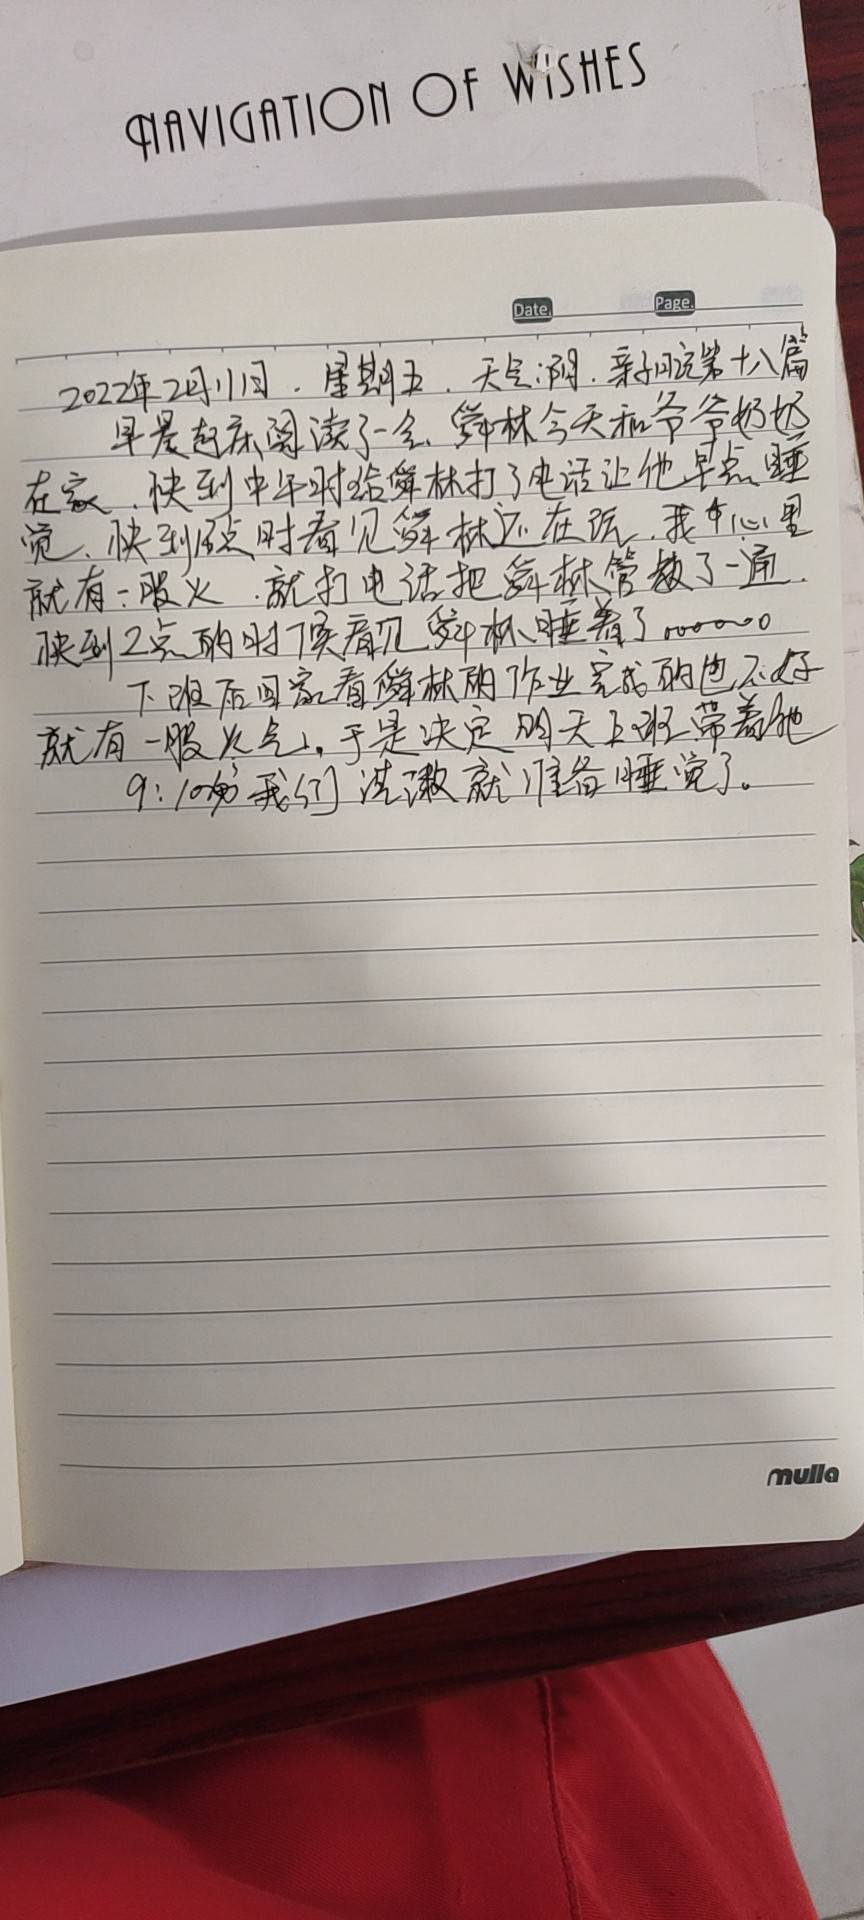 NAVIGATION OF WISHES
Date.
Page.
2022年2月11日．星期五．天气:阴．亲子日记第十八篇
早晨起床阅读了一会、舜林今天和爷爷奶奶
在家．快到中午时给舜林打了电话让他早点睡
觉、快到1点时看见舜林还在玩．我心里
就有一股火．就打电话把舜林管教了一通．
快到2点的时候看见舜林睡着了。。。。。。
下班后回家看舜林的作业完成的也不好
就有一股火气、于是决定明天上班带着他
9:10分我们洗漱就准备睡觉了。
mulla